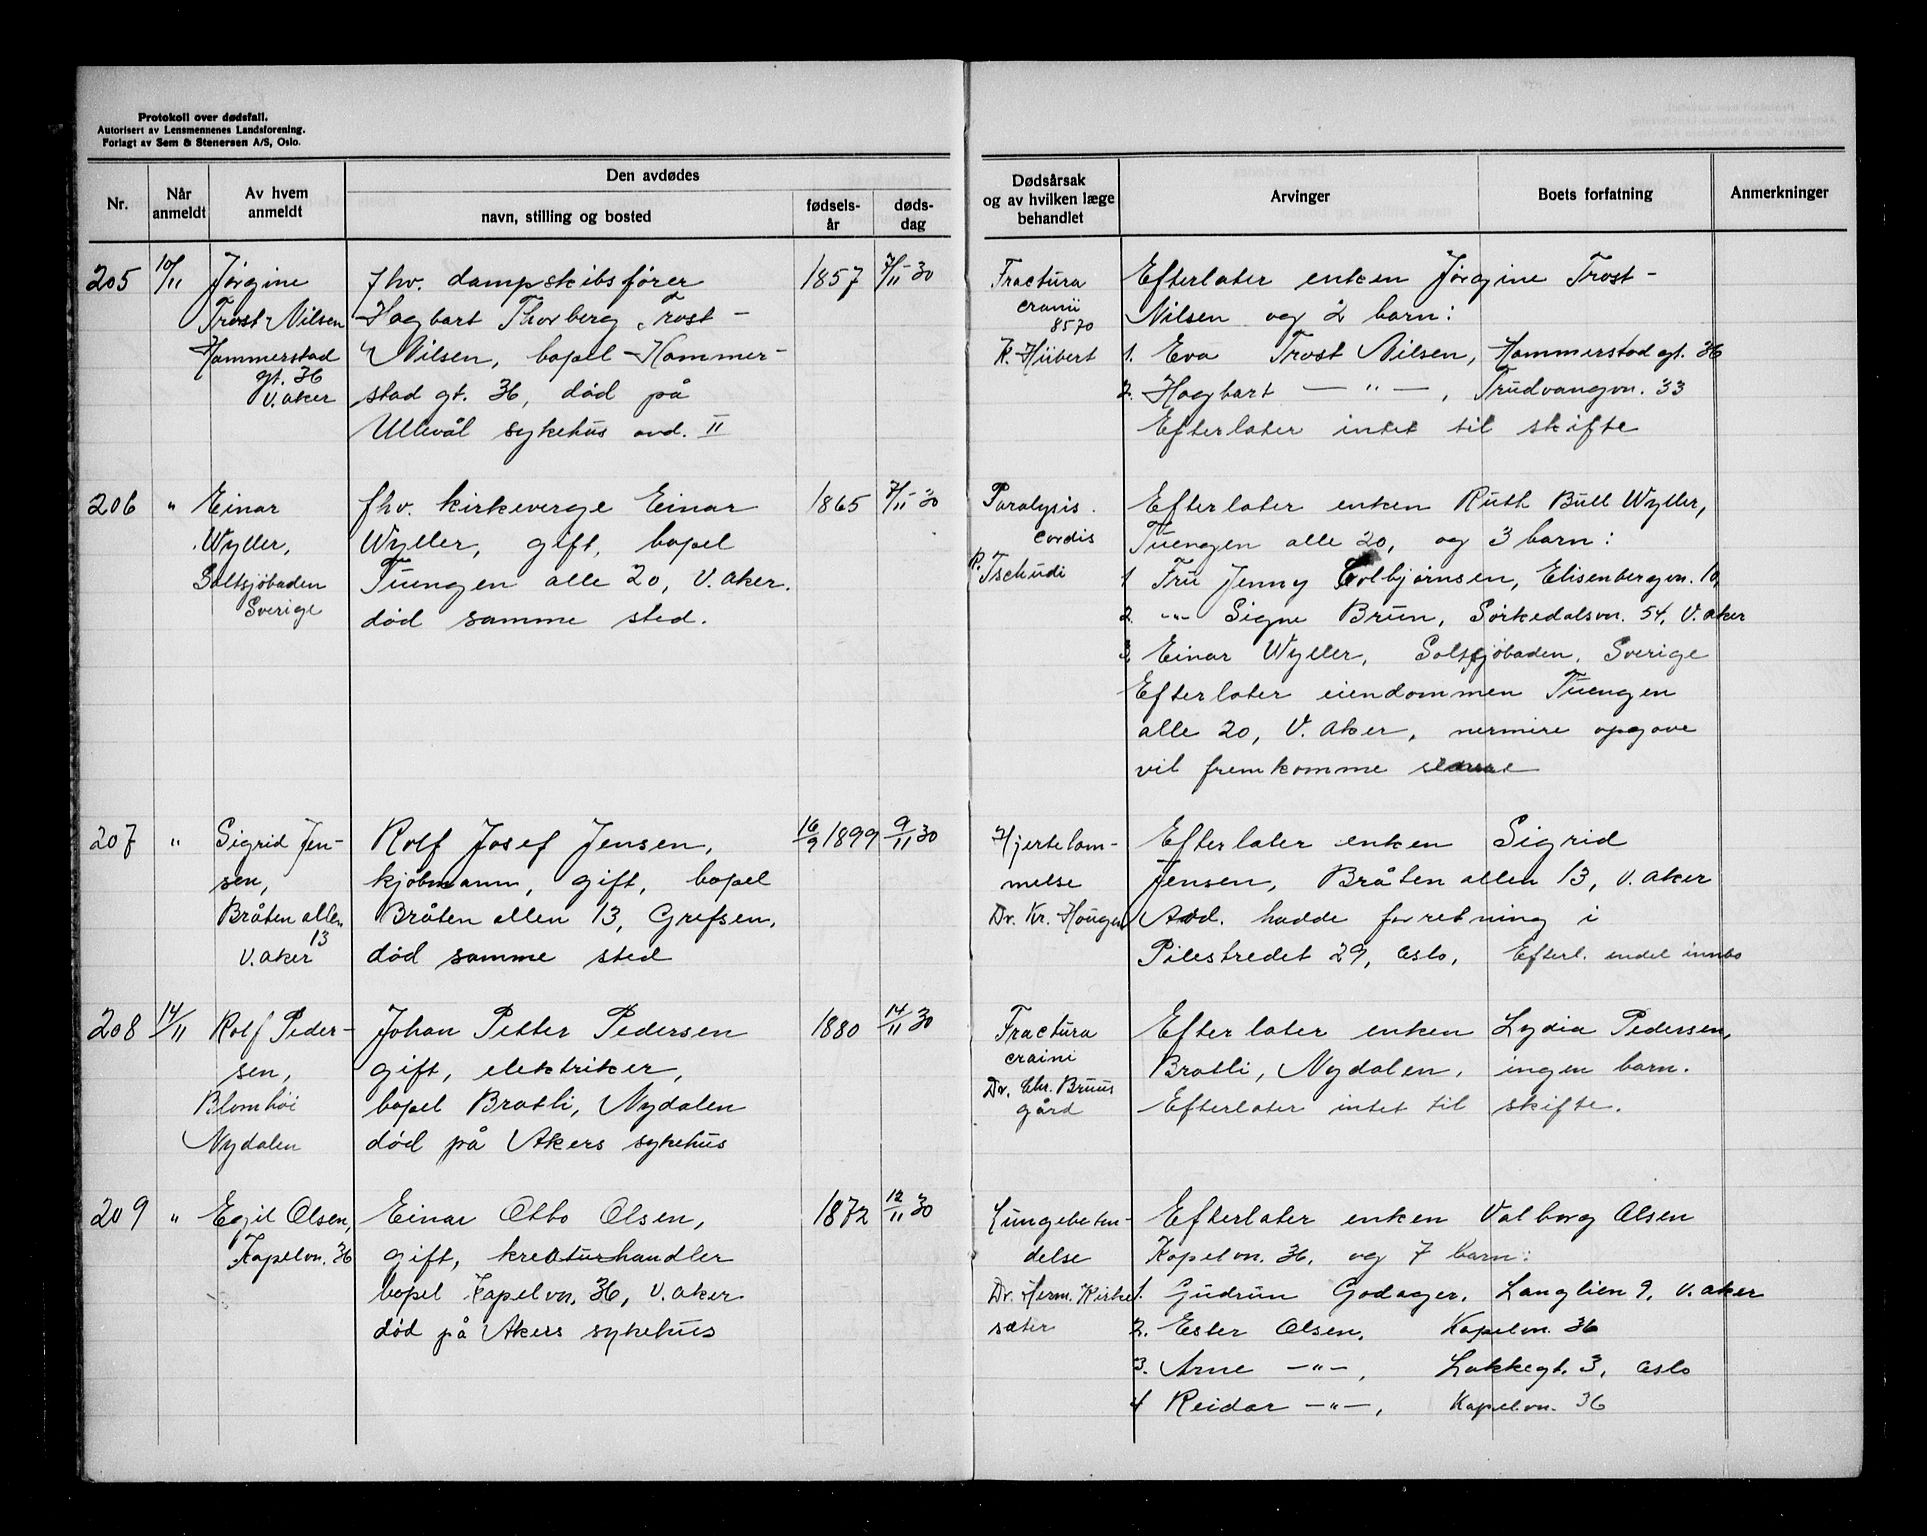 Protokoll over dødsfall.
Autorisert av Lensmennenes Landsforening.
Forlagt av Sem & Stenersen A/S, Oslo.
Nr.
Når anmeldt
Av hvem anmeldt
Den avdødes
navn, stilling og bosted
fødsels-år
døds-dag
Dødsårsak
og av hvilken læge
behandlet
Arvinger
Boets forfatning
Anmerkninger
205 10/11 Jørgine
Trost Nilsen
Hammerstad
gt. 36
V. aker
fhv. dampskibsfører
Hagbart Thorberg Trost-
Nilsen, bopel Hammer-
stad gt. 36, død på
Ullevål sykehus avd. II
1857 7/11-30
Fractura
cranii
8570
K. Hübert
Efterlater enken Jørgine Trost-
Nilsen og 2 barn:
1. Eva Trost Nilsen, Hammerstad gt. 36
2. Hagbart —"—, Trudvangvn. 33
Efterlater intet til skifte
206 " Einar
Wyller,
Saltsjöbaden
Sverige
fhv. kirkeverge Einar
Wyller, gift, bopel
Tuengen alle 20, V. aker.
død samme sted.
1865 7/11-30
Paralysis
cordis
P. Tschudi
Efterlater enken Ruth Bull Wyller,
Tuengen alle 20, og 3 barn:
1 Fru Jenny Colbjørnsen, Elisenbergvn. 10,
2. -"- Signe Brun, Sørkedalsvn. 54, V. aker
3 Einar Wyller, Saltsjöbaden, Sverige
Efterlater eiendommen Tuengen
alle 20, V. aker, nermire opgave
vil fremkomme senere
207 " Sigrid Jen-
sen,
Bråten allen
13
V. aker
Rolf Josef Jensen,
kjøbmann, gift, bopel
Bråten allen 13, Grefsen,
død samme sted
16/9 1899 9/11 30
Hjertelam-
melse
Dr. Kr. Hougen
Efterlater enken Sigrid
Jensen, Bråten allen 13, V. aker
Avd. hadde forretning i
Pilestredet 29, Oslo, Efterl. endel innbo
208 14/11 Rolf Peder-
sen,
Blomhöi
Nydalen
Johan Petter Pedersen
gift, elektriker,
bopel Bratli, Nydalen
død på Akers sykehus
1880 14/11 30
Fractura
craini
Dr. Chr. Bruus
gård
Efterlater enken Lydia Pedersen,
Bratli, Nydalen, ingen barn.
Efterlater intet til skifte.
209 " Egil Olsen,
Kapelvn. 36
Einar Otto Olsen,
gift, kreaturhandler
bopel Kapelvn. 36, V. aker
død på Akers sykehus
1872 12/11 30
Lungebeten-
delse
Dr. Herm. Kirke
sæter
Efterlater enken Valborg Olsen
Kapelvn. 36, og 7 barn:
1. Gudrun Godager, Langlien 9, V. aker
2. Ester Olsen, Kapelvn. 36
3. Arne —"—, Lakkegt. 3, Oslo
4 Reidar —"—, Kapelvn. 36